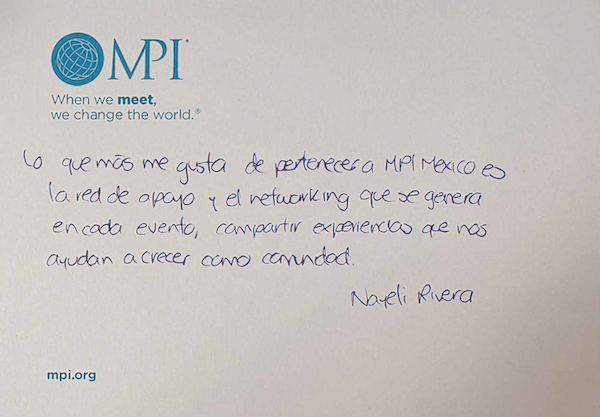 MPI®
When we meet,
we change the world.®
Lo que más me gusta de pertenecer a MPI México es
la red de apoyo y el networking que se genera
en cada evento, compartir experiencias que nos
ayudan a crecer como comunidad.
Nayeli Rivera
mpi.org